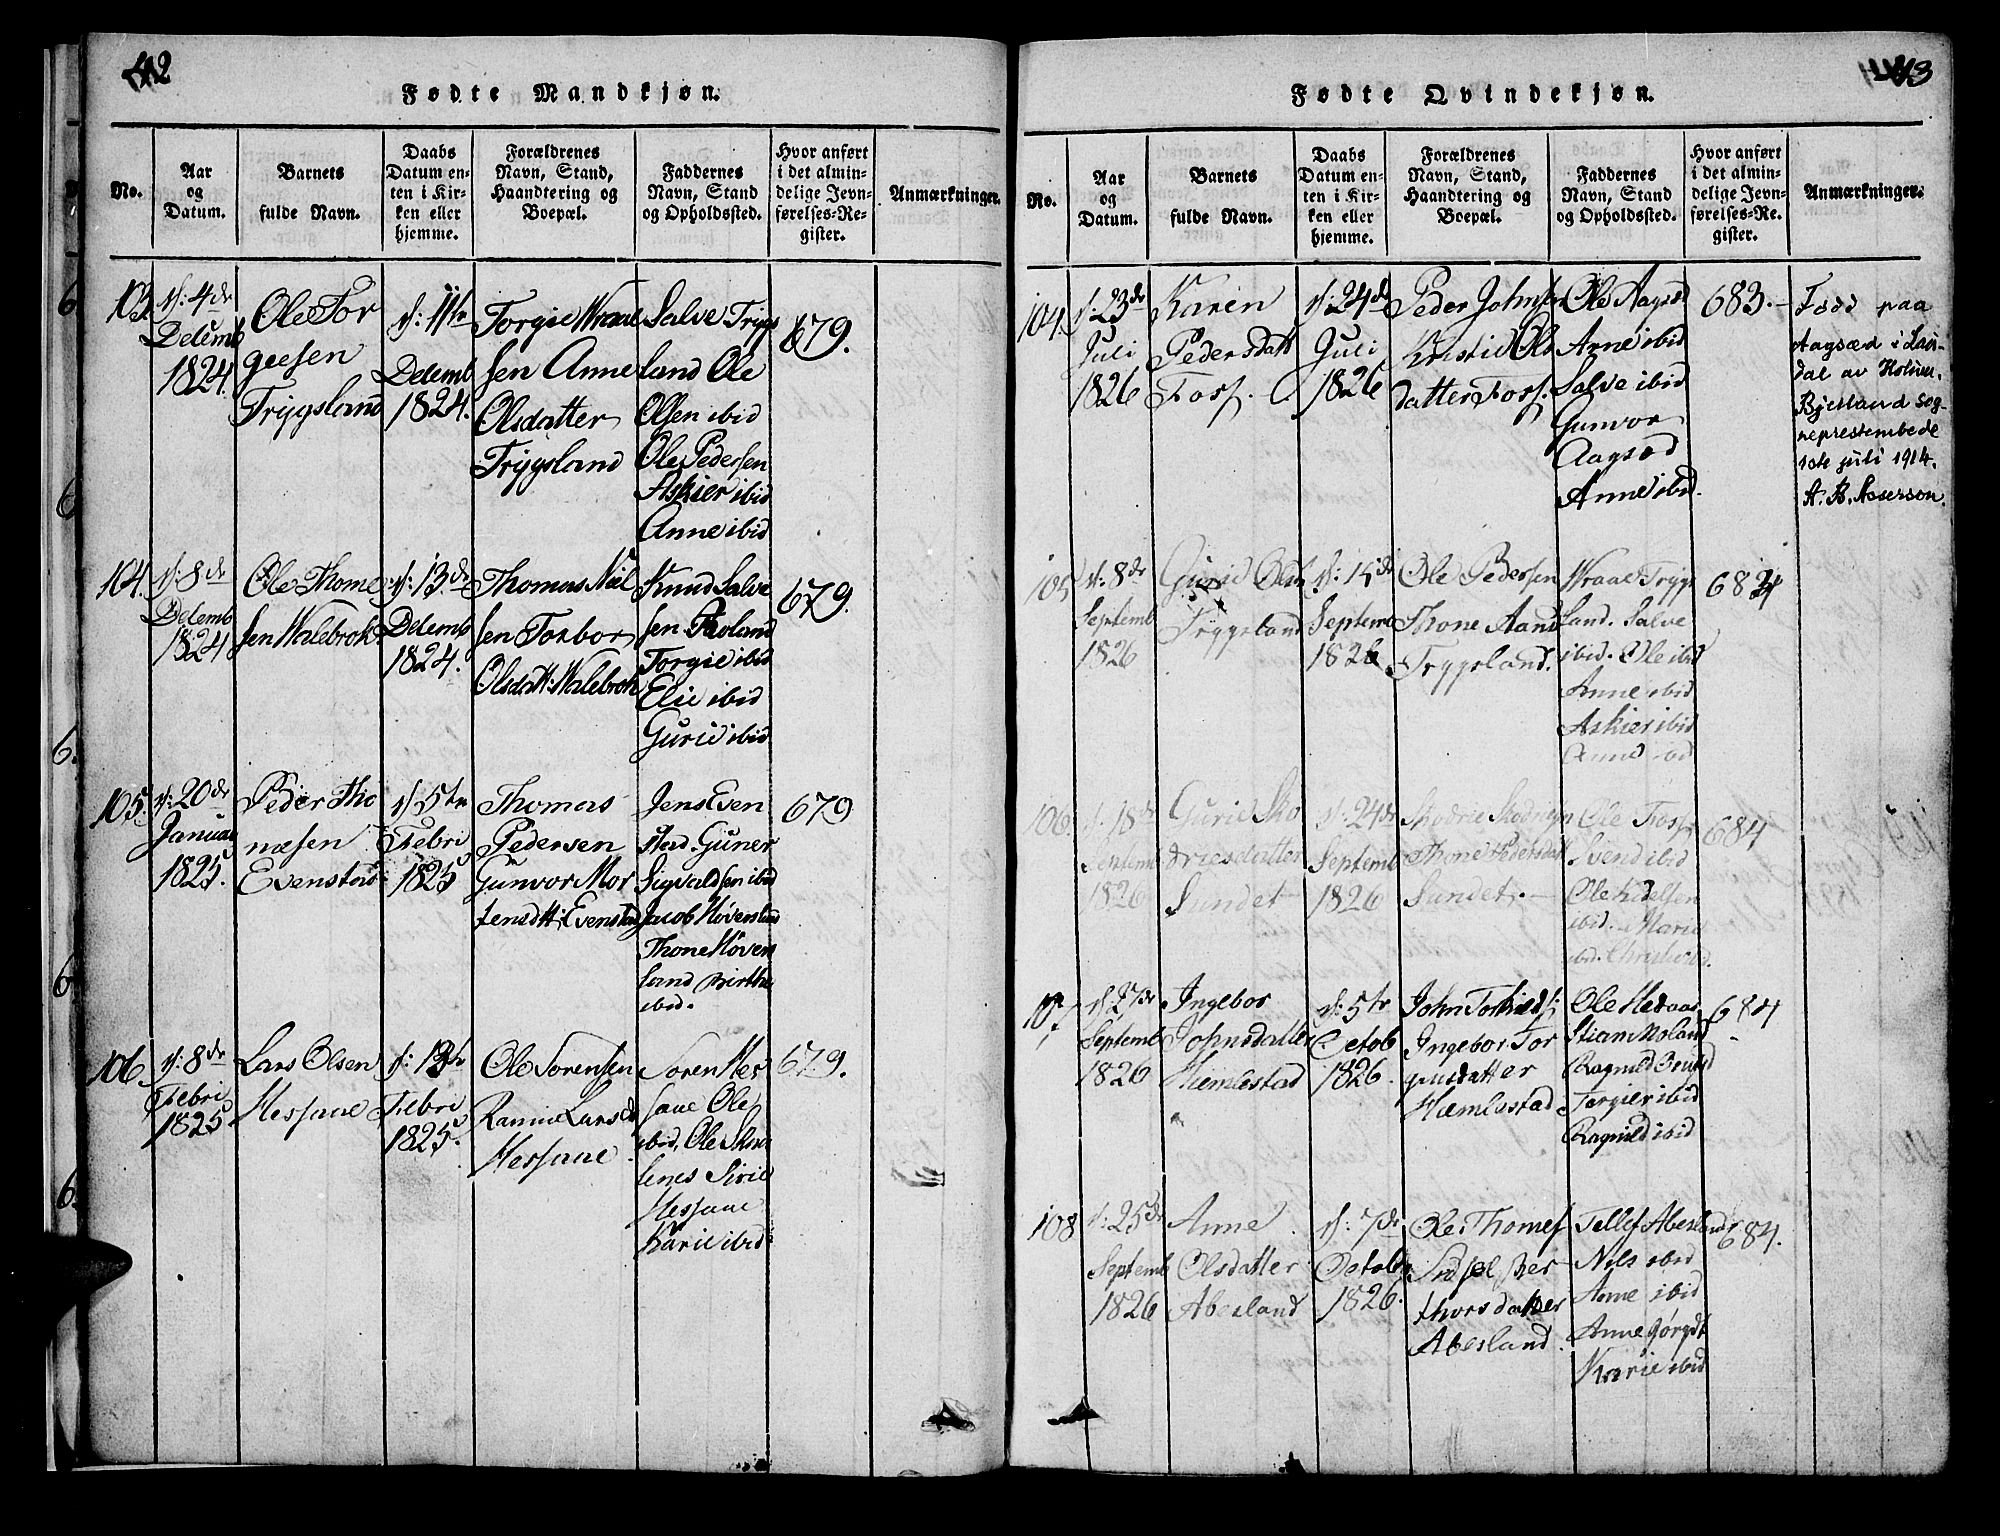 42
Fødte Mandkjøn.
No.
Aar
og
Datum.
Barnets
fulde Navn.
Daabs
Datum en-
ten i Kir-
ken eller
hjemme.
Forældrenes
Navn, Stand,
Haandtering og
Boepæl.
Faddernes
Navn, Stand
og Opholdssted.
Hvor anført
i det almin-
delige Jevn-
førelses-Re-
gister.
Anmærkninger.
103.
d: 4de
Decemb
1824.
Ole Tor
geesen
Trygsland
d: 11te
Decemb
1824.
Torgie Wraae
sen Anne
Olsdatter
Trygsland
Salve Trygs
land Ole
Olsen ibid
Ole Pedersen
Askier ibid
Anne ibid
679.
104.
d: 8de
Decemb
1824
Ole Thome
sen Walebrok
d: 13de
Decemb
1824.
Thomas Niel
sen Torbor
Olsdatt: Walebrok
Knud Salve
sen
Torgie ibid
Elie ibid
Gurie ibid
679.
105.
d: 20de
Januar
1825.
Peder Tho
mesen
Evenstad
d 5te
Febri
1825
Thomas
Pedersen
Gunvor Mor
tensdtt: Evenstad
Jens Even
stad. Guner
Sigvaldsen ibid
Jacob Høversland
Thone Høvers
land Birthe
ibid.
679
106.
d: 8de
Febri
1825
Lars Olsen
Messane
d:
Febri
1825.
Ole Sorensen
Rannie Larsd
Messane
Soren Mes
sane Ole
ibid, Ole
Sirie
Messane
Karie ibid
679.
43
Fødte Qvindekjøn.
No.
Aar
og
Datum.
Barnets
fulde Navn.
Daabs
Datum en-
ten i Kir-
ken eller
hjemme.
Forældrenes
Navn, Stand,
Haandtering og
Boepæl.
Faddernes
Navn, Stand
og Opholdssted.
Hvor anført
i det almin-
delige Jevn-
førelses-Re-
gister.
Anmærkninger.
104.
d: 23de
Juli
1826
Karen
Pedersdatt
Foss.
d: 24de
Juli
1826
Peder Johnsen
Kristie Ols
datter Foss.
Ole Aagsæd
Arne ibid
Salve ibid
Gunvor
Aagsæd
Anne ibid.
683.-
Fødd paa
Aagsæd i Lau-
dal av Holum.
Bjelland sog-
neprestembede
1ste juli 1914.
A. B. Aaserson.
105
d: 8de
Septemb
1826
Gurie Olsd
Trygsland
d: 15de
Septemb
1826
Ole Pedersen
Thone Aand
Trygsland.
Wraae Trygs
land. Salve
ibid. Ole ibid
Anne ibid
Askier ibid
Anne ibid
684
106.
d: 18de
Septemb
1826
Gurie Sko
driesdatter
Sundet
d: 24de
Septemb
1826
Skodrie
Thone Pedersdatt
Sundet.-
Ole Foss
Svend ibid
Ole Kidelsen
ibid. Marie
ibid. Christi ibid.
684
107
d: 27de
Septemb
1826
Ingebor
Johnsdatter
Hæmlestad
d: 5te
Octob
1826.
John
Ingebor Tor
giusdatter
Hæmlestad
Ole Hedaas
Stian Moland
Ragnild
Torgier ibid
Ragnild ibid
684
108
d: 25de
Septemb
1826
Anne
Olsdatter
Abesland
d: 7de
Octob
1826.
Ole Thomes
Sidsel Ber
thorsdatter
Abesland.
Tellef Abesland
Nils ibid
Anne ibid
Anne Gørgdt
Karie ibid
684.